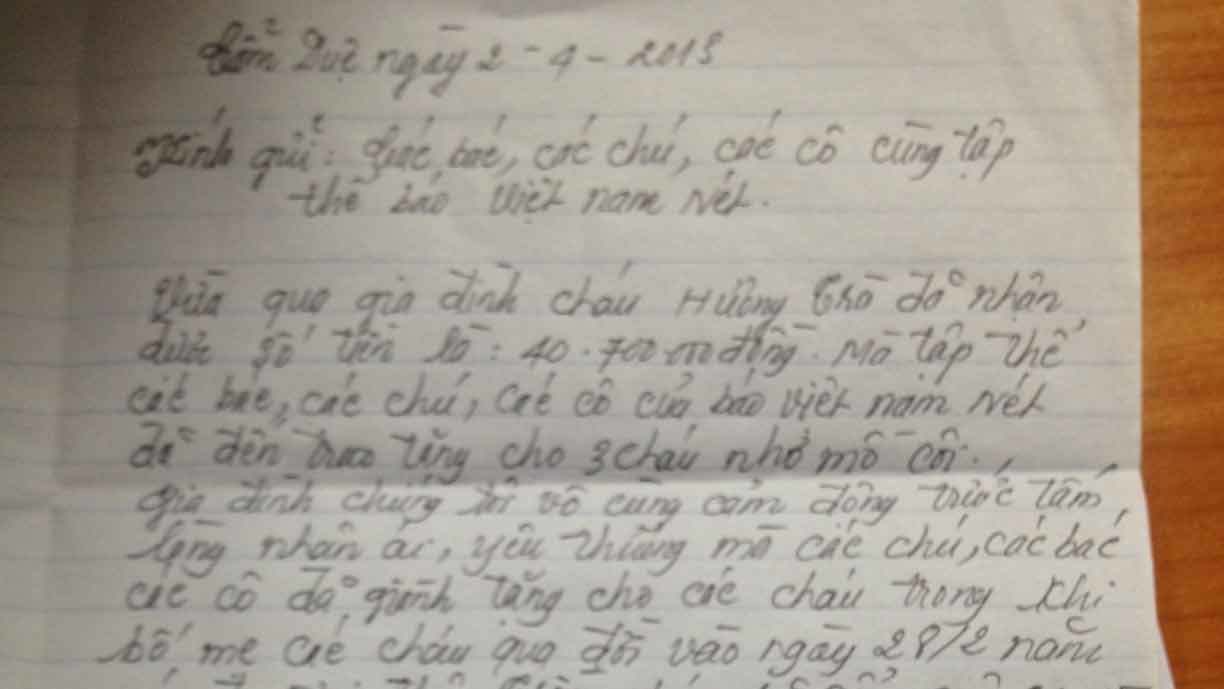 Cẩm Duệ ngày 2-4-2013
Kính gửi: Các bác, các chú, các cô cùng tập
thể báo Việt nam Nét.
Vừa qua gia đình cháu Hương Trà đã nhận
được số tiền là: 40.700.000 đồng. Mà tập thể
các bác, các chú, các cô của báo việt nam Nét
đã đến trao tặng cho 3 cháu nhỏ mồ côi.
Gia đình chúng tôi vô cùng cảm động trước tấm
lòng nhân ái, yêu thương mà các chú, các bác
các cô đã giành tặng cho các cháu trong khi
bố, mẹ các cháu qua đời vào ngày 28/2 năm